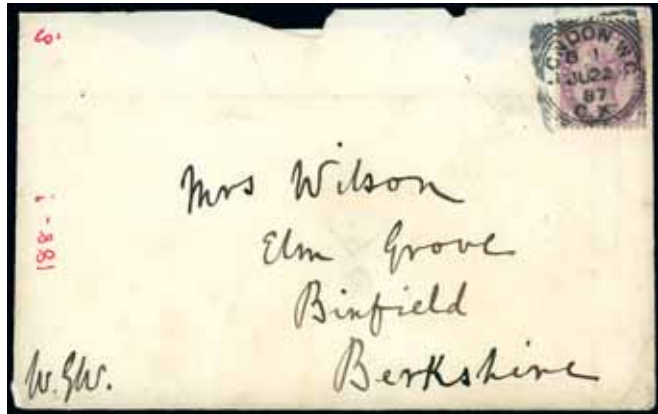 LONDON.W.C.
8 1
JU22
87
C X
Mrs Wilson
Elm Grove
Binfield
Berkshire
W.G.W.